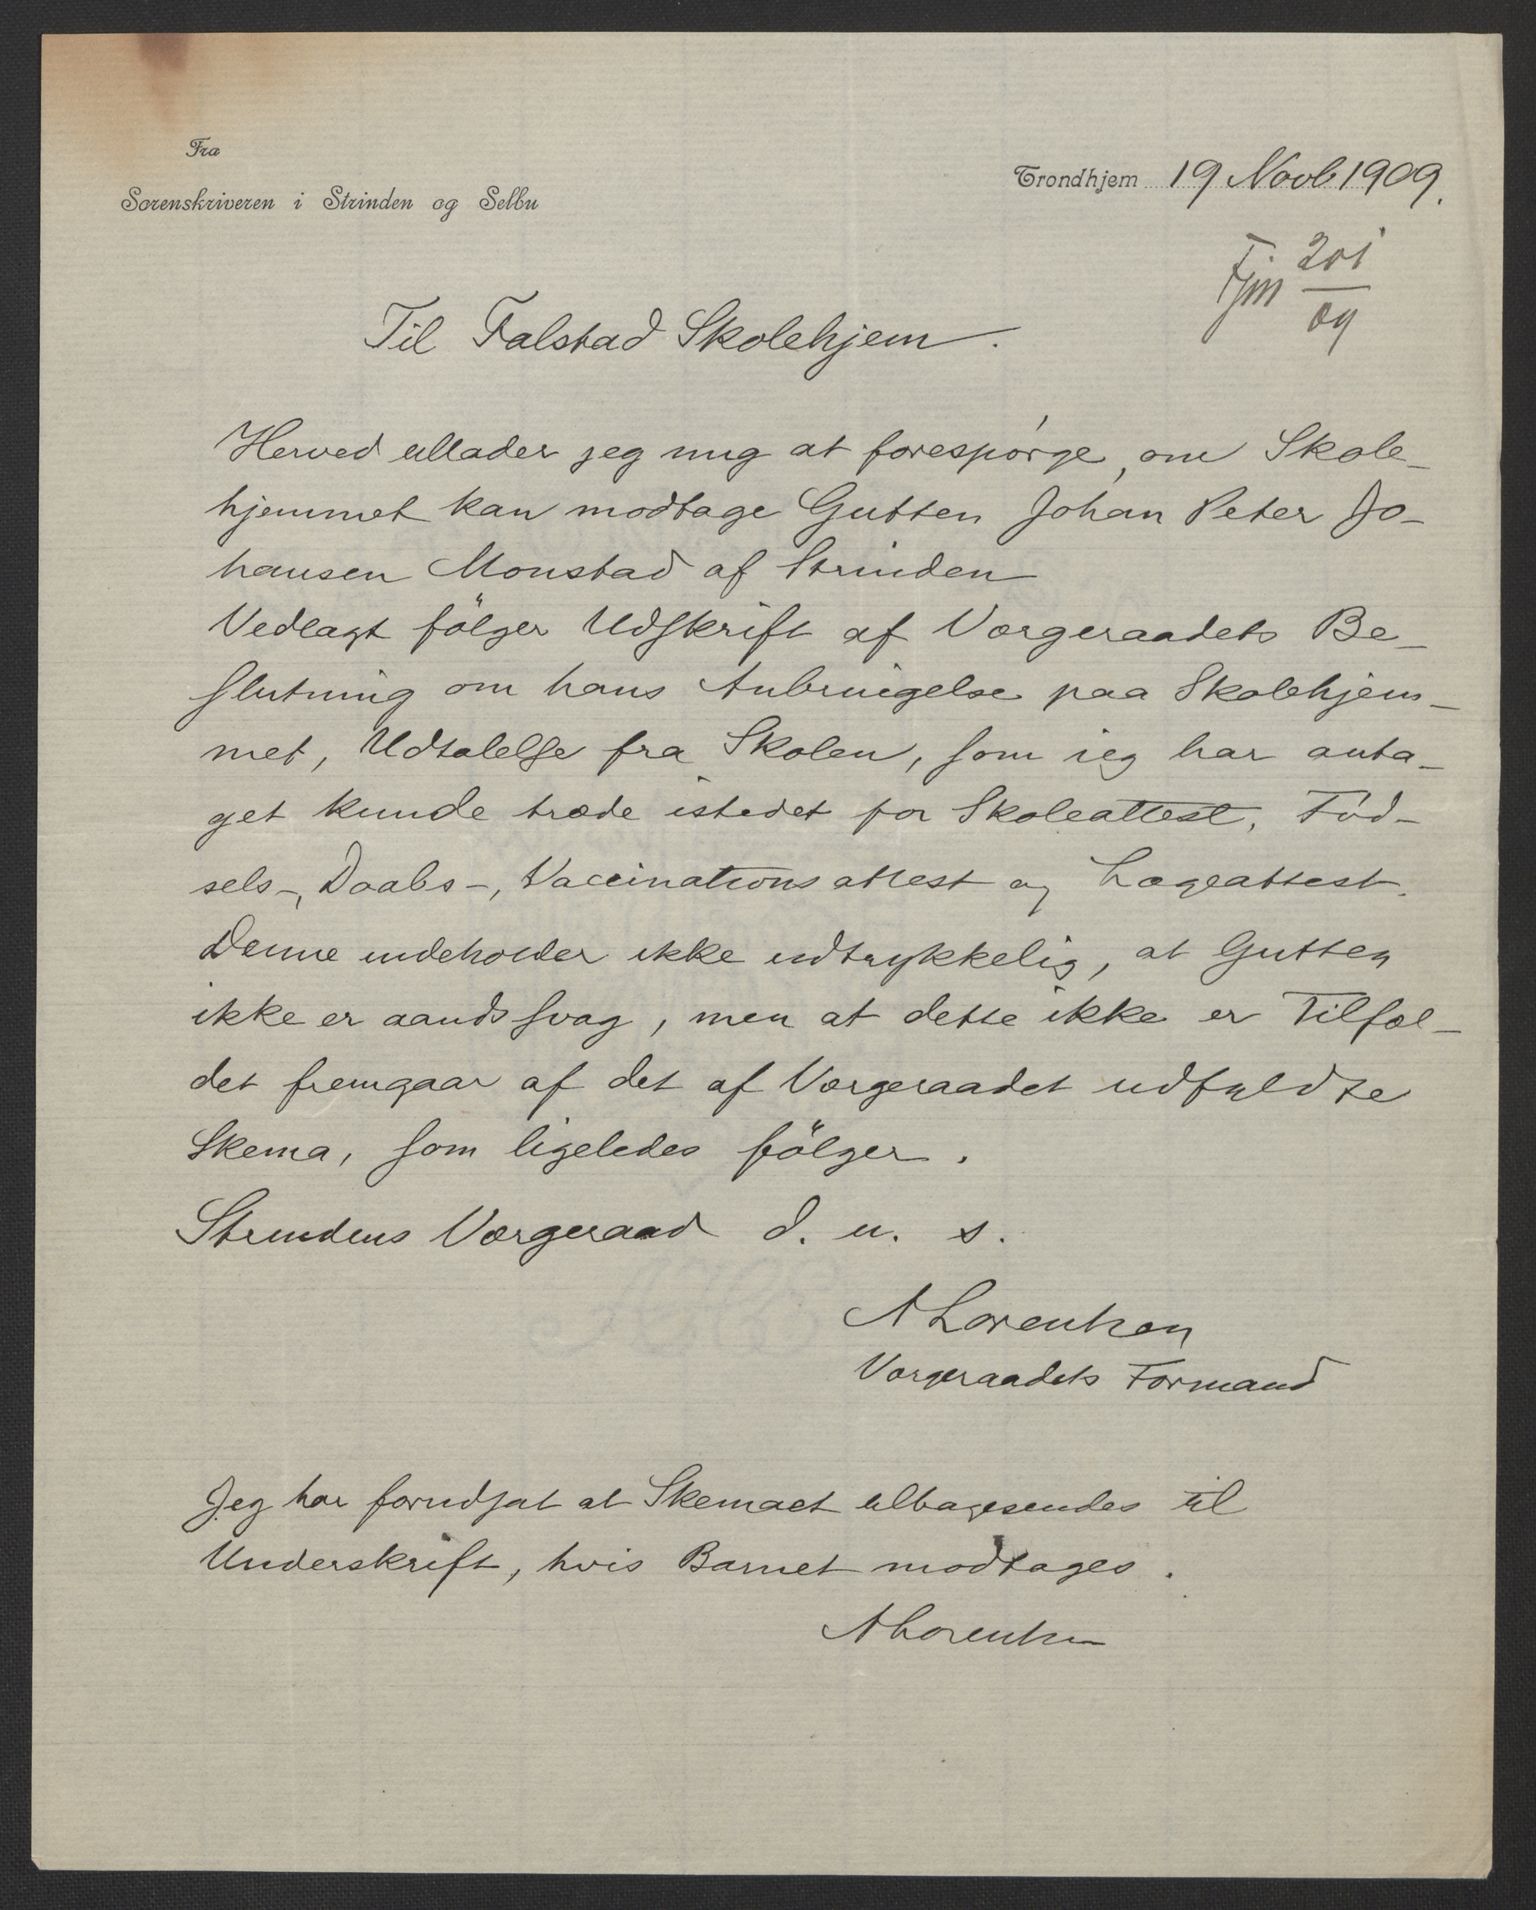 Fra
Sorenskriveren i Strinden og Selbu
Trondhjem 19 Novb 1909.
Fjm 201
09
Til Falstad Skolehjem.
Herved tillader jeg mig at forespørge, om Skole-
hjemmet kan modtage Gutten Johan Peter Jo-
hansen Monstad af Strinden
Vedlagt følger Udskrift af Værgeraadets Be-
slutning om hans Anbringelse paa Skolehjem-
met, Udtalelse fra Skolen, som jeg har anta-
get kunde træde istedet for Skoleattest, Fød-
sels-, Daabs-, Vaccinationsattest og Lægeattest.
Denne indeholder ikke udtrykkelig, at Gutten
ikke er aandssvag, men at dette ikke er Tilfæl-
det fremgaar af det af Værgeraadet udfyldte
Skema, som ligeledes følger.
Strindens Værgeraad d. u. s.
A Lorentzen
Værgeraadets Formand
Jeg har forudsat at Skemaet tilbagesendes til
Underskrift, hvis Barnet modtages.
A Lorentzen